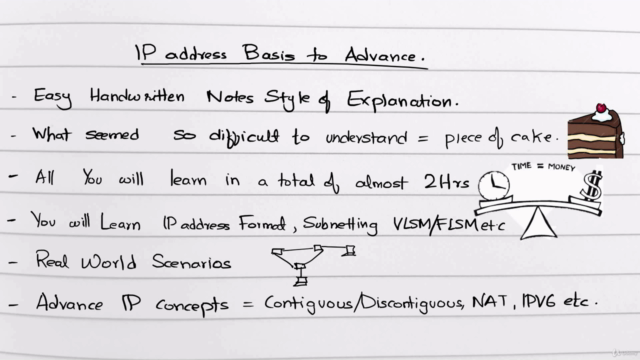 IP address Basis to Advance.
- Easy Handwritten Notes Style of Explanation.
- What seemed so difficult to understand = piece of cake.
TIME = MONEY
- All You will learn in a total of almost 2Hrs
- You will Learn IP address Format, Subnetting VLSM/FLSM etc
- Real World Scenarios
- Advance IP concepts = Contiguous/Discontiguous, NAT, IPV6 etc.